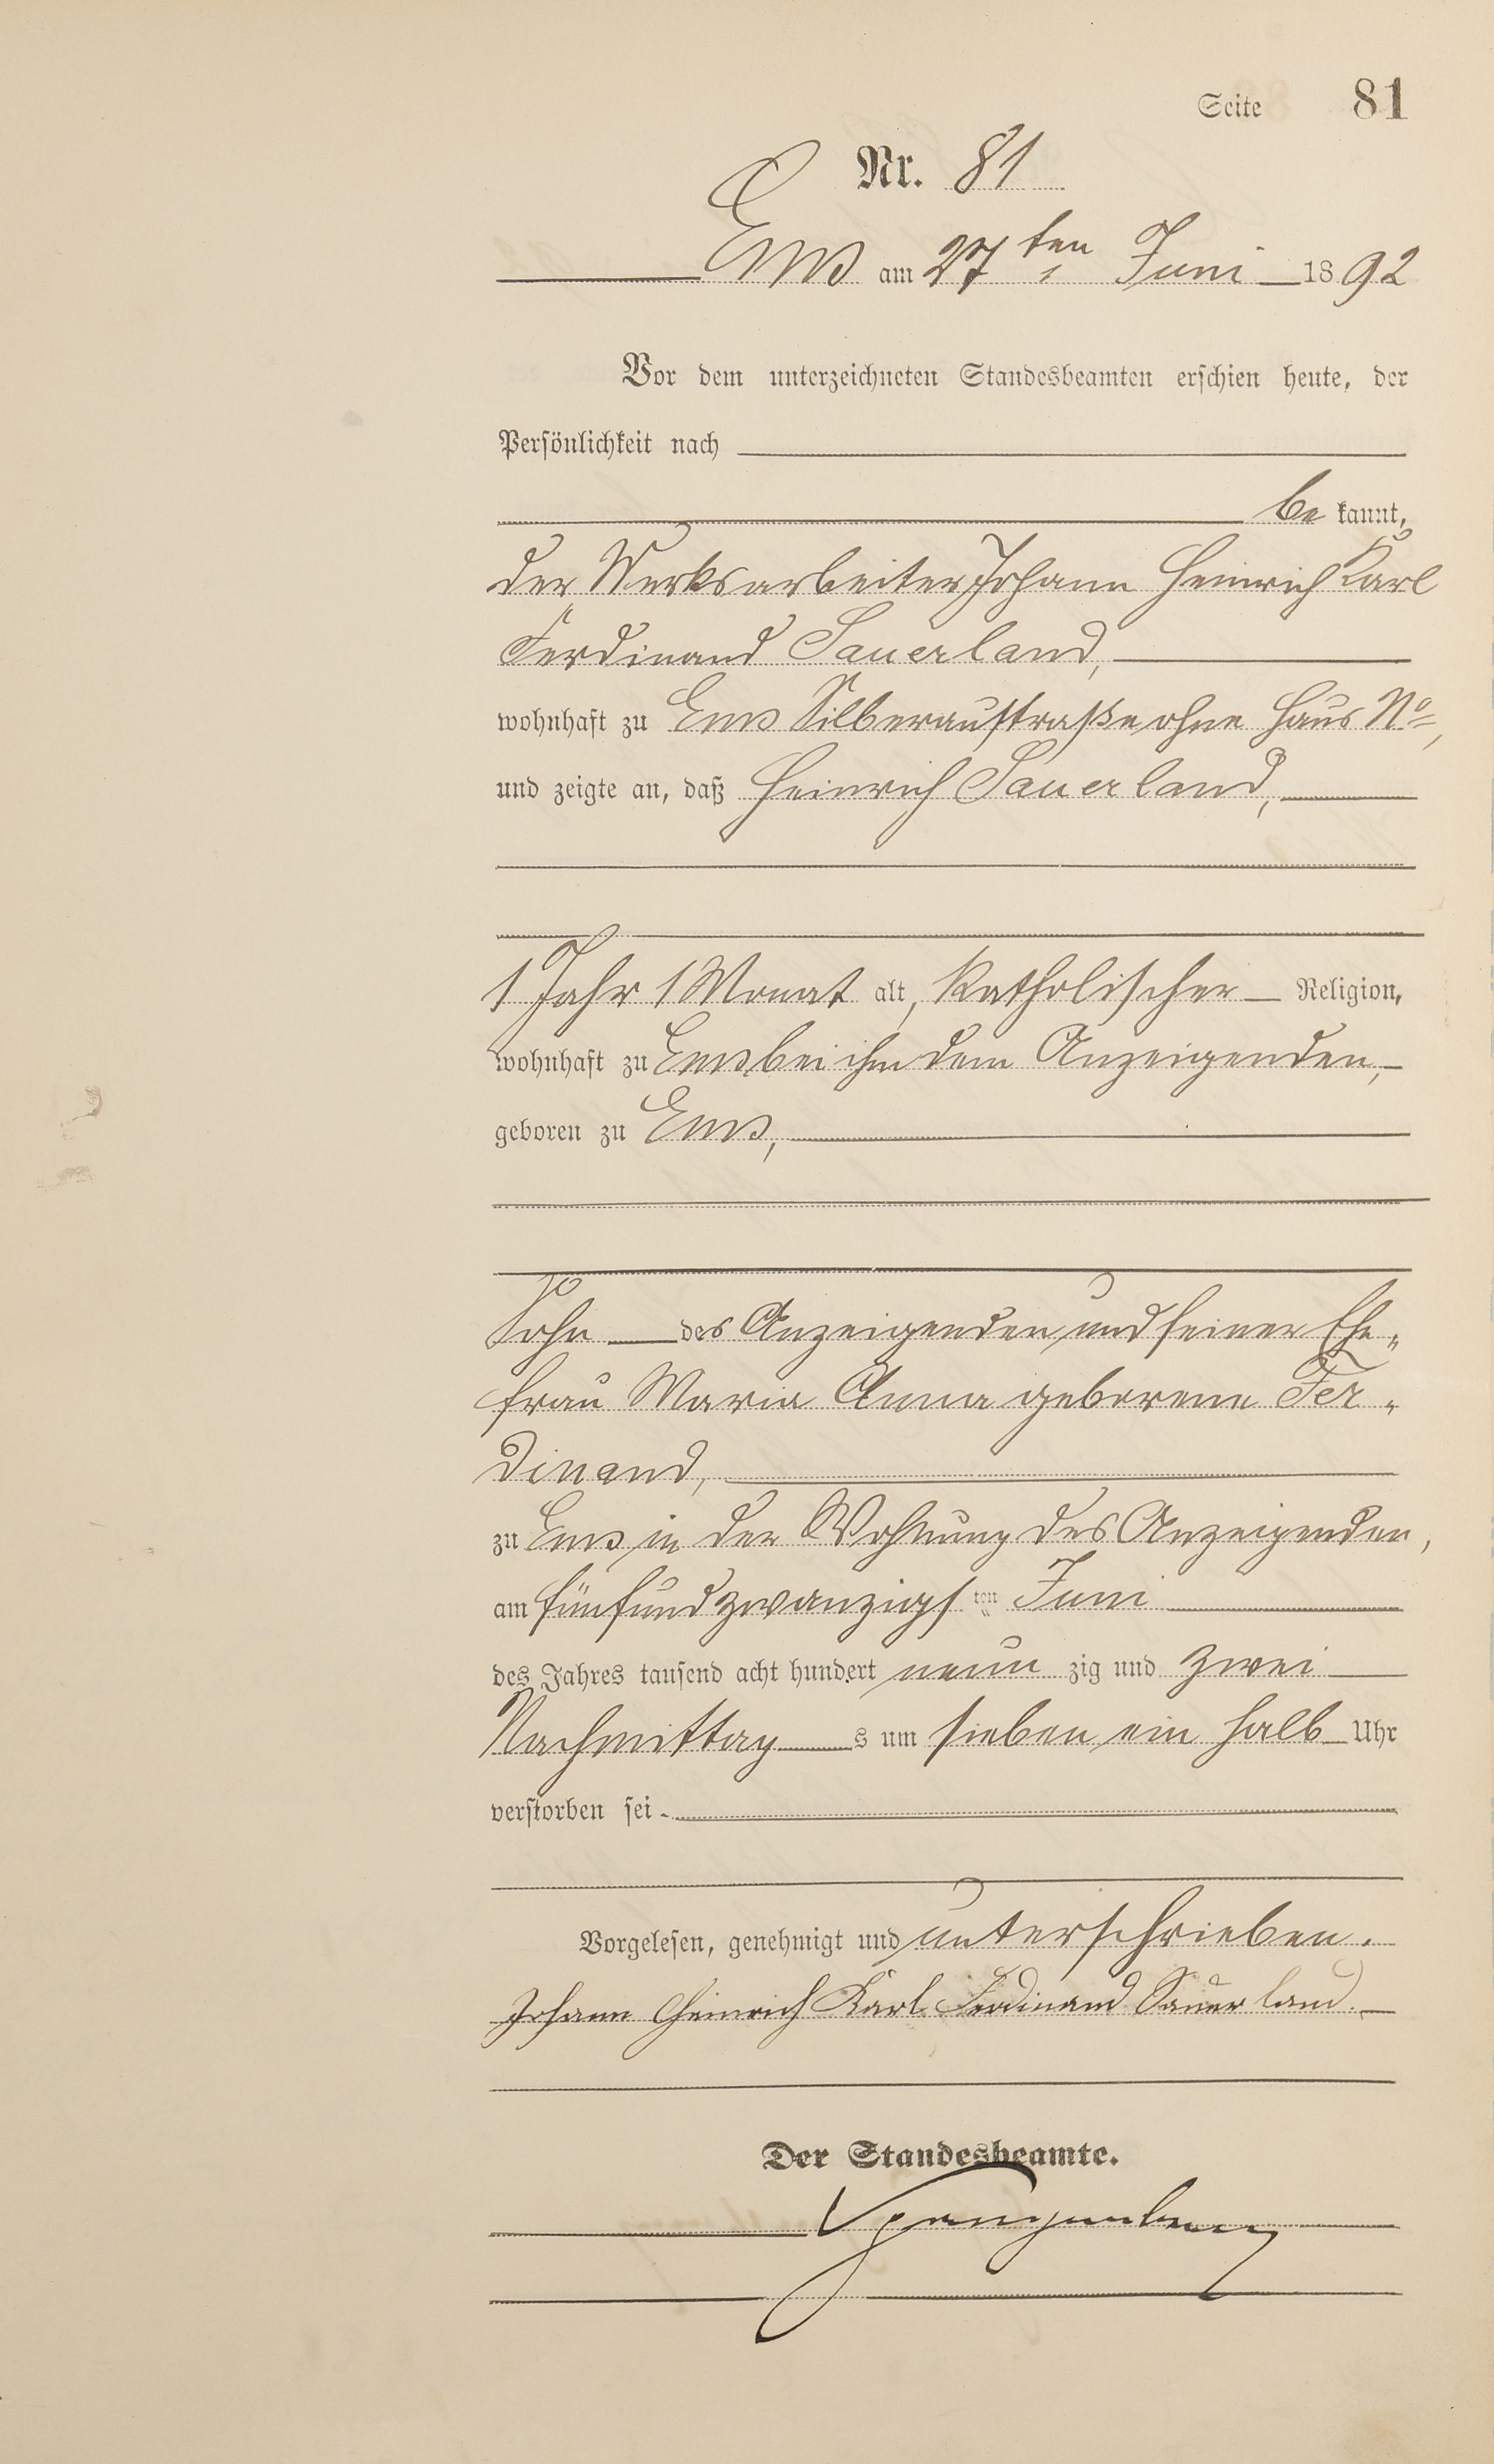 Seite 81
Nr. 81
Ems am 27ten Juni 1892
Vor dem unterzeichneten Standesbeamten erschien heute, der
Persönlichkeit nach
be kannt,
der Werksarbeiter Johann Heinrich Karl
Ferdinand Sauerland,
wohnhaft zu Ems Silberaustraße ohne Haus No,
und zeigte an, daß Heinrich Sauerland,
1 Jahr 1 Monat alt, katholischer Religion,
wohnhaft zu Ems bei ihm dem Anzeigenden,
geboren zu Ems,
Sohn des Anzeigenden und seiner Ehe-
frau Maria Anna geborene Fer-
dinand,
zu Ems in der Wohnung des Anzeigenden,
am fünfundzwanzigsten Juni
des Jahres tausend acht hundert neun zig und zwei
Nachmittags um sieben ein halb Uhr
verstorben sei.
Vorgelesen, genehmigt und unterschrieben.
Johann Heinrich Karl Ferdinand Sauerland.
Der Standesbeamte.
Spangenberg